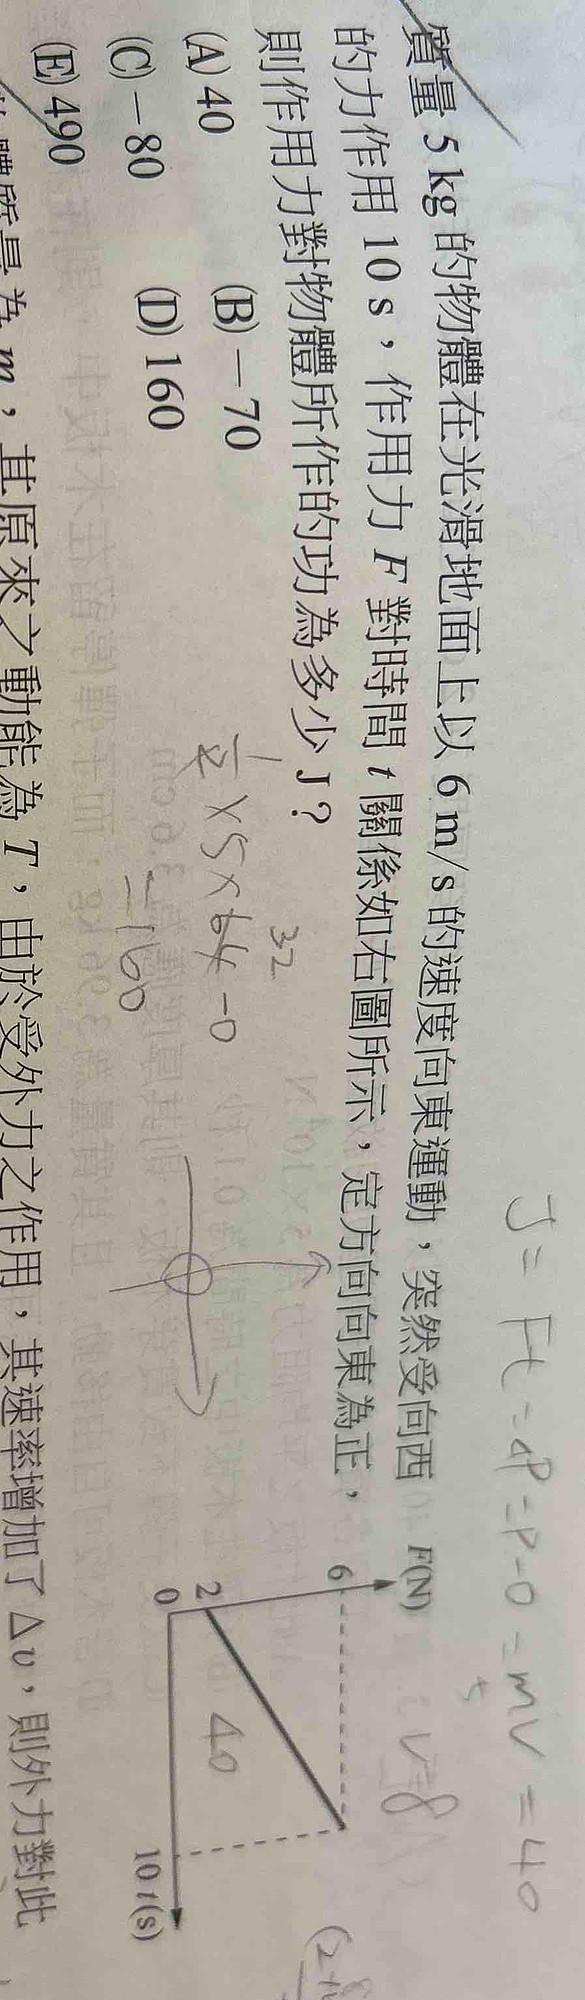 質量 5 kg 的物體在光滑地面上以 6 m/s 的速度向東運動，突然受向西
的力作用 10 s，作用力 F 對時間 t 關係如右圖所示，定方向向東為正，
則作用力對物體所作的功為多少 J？
(A) 40
(B) －70
(C) －80
(D) 160
(E) 490
F(N)
6
2
0
10 t(s)
J = Ft = ΔP = P - 0 = mV = 40
5
V=8
40
32
1/2 × 5 × 64 - 0
= 160
物體質量為 m，其原來之動能為 T，由於受外力之作用，其速率增加了 Δv，則外力對此